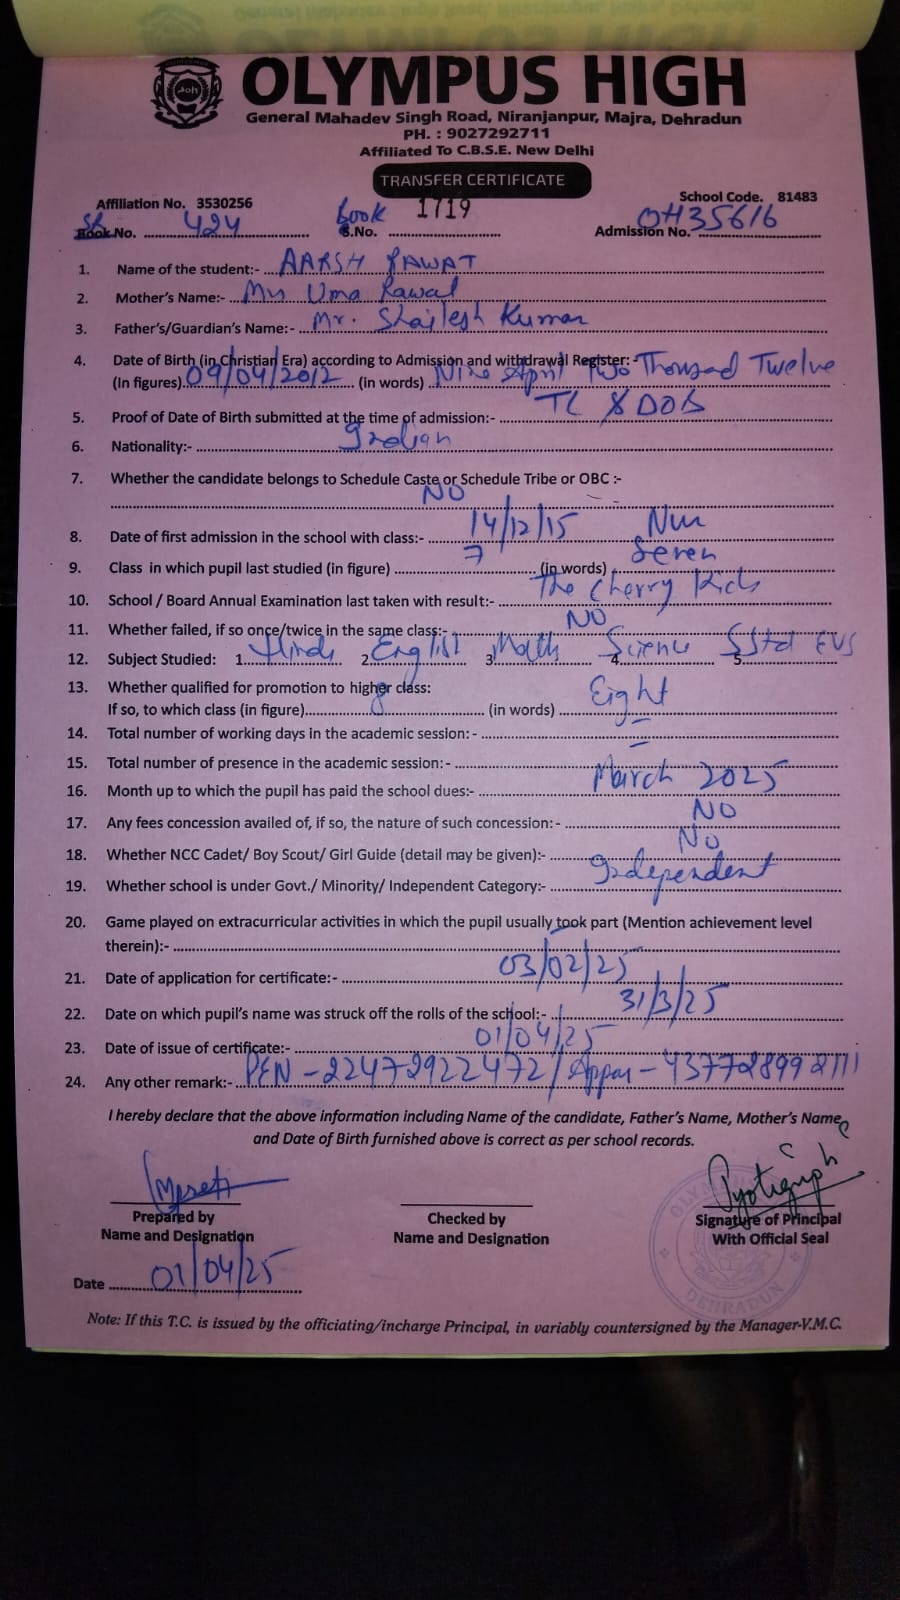 OLYMPUS HIGH
General Mahadev Singh Road, Niranjanpur, Majra, Dehradun
PH. : 9027292711
Affiliated To C.B.S.E. New Delhi
TRANSFER CERTIFICATE
Affiliation No. 3530256 School Code. 81483
Book No. 424 Book S.No. 1719 Admission No. OH35616
1. Name of the student:- AARSH RAWAT
2. Mother's Name:- Mrs Uma Rawat
3. Father's/Guardian's Name:- Mr. Shailesh Kumar
4. Date of Birth (in Christian Era) according to Admission and withdrawal Register:-
(In figures) 09/04/2012 (in words) Nine April Two Thousand Twelve
5. Proof of Date of Birth submitted at the time of admission:- TC & DOB
6. Nationality:- Indian
7. Whether the candidate belongs to Schedule Caste or Schedule Tribe or OBC :-
NO
8. Date of first admission in the school with class:- 14/12/15 Nur
9. Class in which pupil last studied (in figure) 7 (in words) Seven
10. School / Board Annual Examination last taken with result:- The Cherry Kids
11. Whether failed, if so once/twice in the same class:- NO
12. Subject Studied: 1. Hindi 2. English 3. Math 4. Science 5. SStd EVS
13. Whether qualified for promotion to higher class:
If so, to which class (in figure) 8 (in words) Eight
14. Total number of working days in the academic session: - –
15. Total number of presence in the academic session:- –
16. Month up to which the pupil has paid the school dues:- March 2025
17. Any fees concession availed of, if so, the nature of such concession:- NO
18. Whether NCC Cadet/ Boy Scout/ Girl Guide (detail may be given):- No
19. Whether school is under Govt./ Minority/ Independent Category:- Independent
20. Game played on extracurricular activities in which the pupil usually took part (Mention achievement level
therein):-
21. Date of application for certificate:- 03/02/25
22. Date on which pupil's name was struck off the rolls of the school:- 31/3/25
23. Date of issue of certificate:- 01/04/25
24. Any other remark:- PEN - 22472922472 / Appar -
I hereby declare that the above information including Name of the candidate, Father's Name, Mother's Name,
and Date of Birth furnished above is correct as per school records.
Prepared by Checked by Signature of Principal
Name and Designation Name and Designation With Official Seal
DEHRADUN
Date 01/04/25
Note: If this T.C. is issued by the officiating/incharge Principal, in variably countersigned by the Manager-V.M.C.